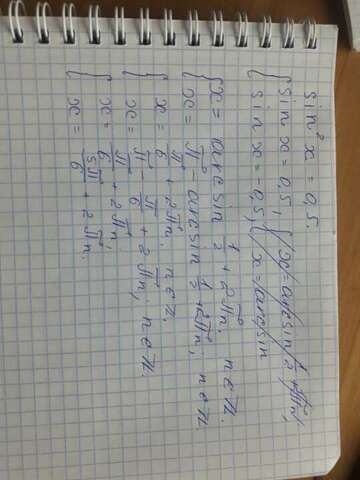 sin² x = 0,5.
{ sin x = 0,5,
{ sin x = 0,5,
{ x = arcsin
{ x = arcsin 1/2 + 2πn, n ∈ Z.
{ x = π - arcsin 1/2 + 2πn, n ∈ Z.
{ x = π/6 + 2πn, n ∈ Z.
{ x = π - π/6 + 2πn, n ∈ Z.
{ x = π/6 + 2πn,
{ x = 5π/6 + 2πn.